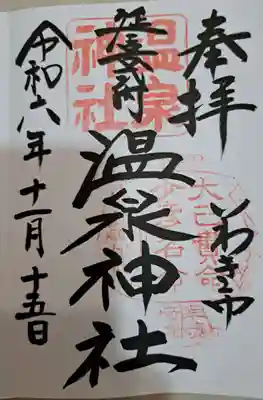 奉拝
いわき市
温泉神社
温泉神社
大己貴命
少彦名命
令和六年十一月十五日